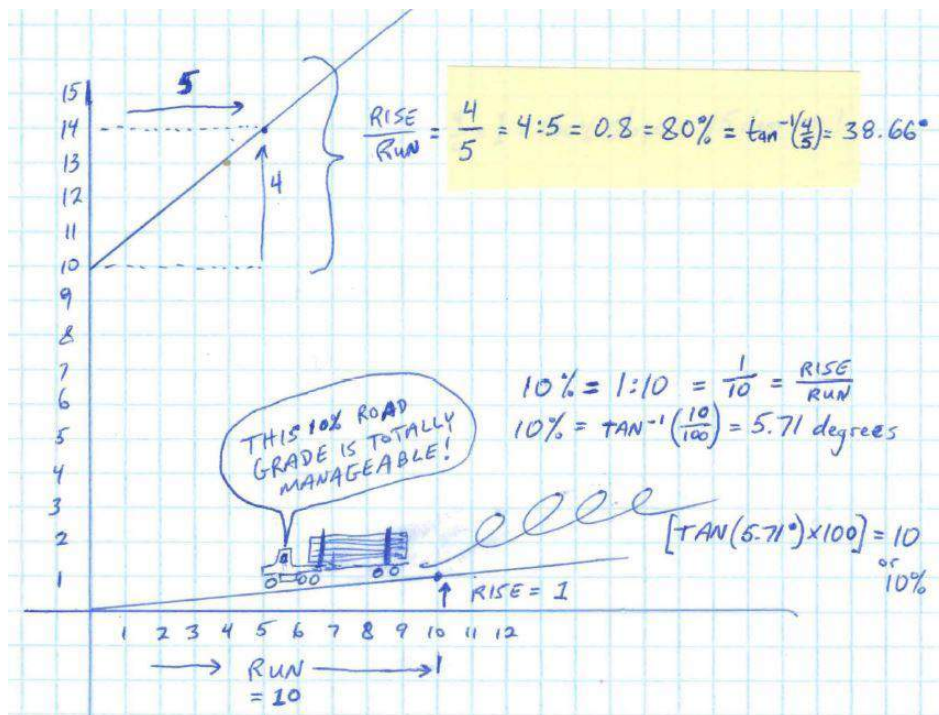 5
15
14
13
12
11
10
9
8
7
6
5
4
3
2
1
4
RISE/RUN = 4/5 = 4:5 = 0.8 = 80% = tan⁻¹(4/5) = 38.66°
10% = 1:10 = 1/10 = RISE/RUN
10% = TAN⁻¹(10/100) = 5.71 degrees
THIS 10% ROAD
GRADE IS TOTALLY
MANAGEABLE!
[TAN(5.71°)×100] = 10
or
10%
RISE = 1
1 2 3 4 5 6 7 8 9 10 11 12
RUN
= 10